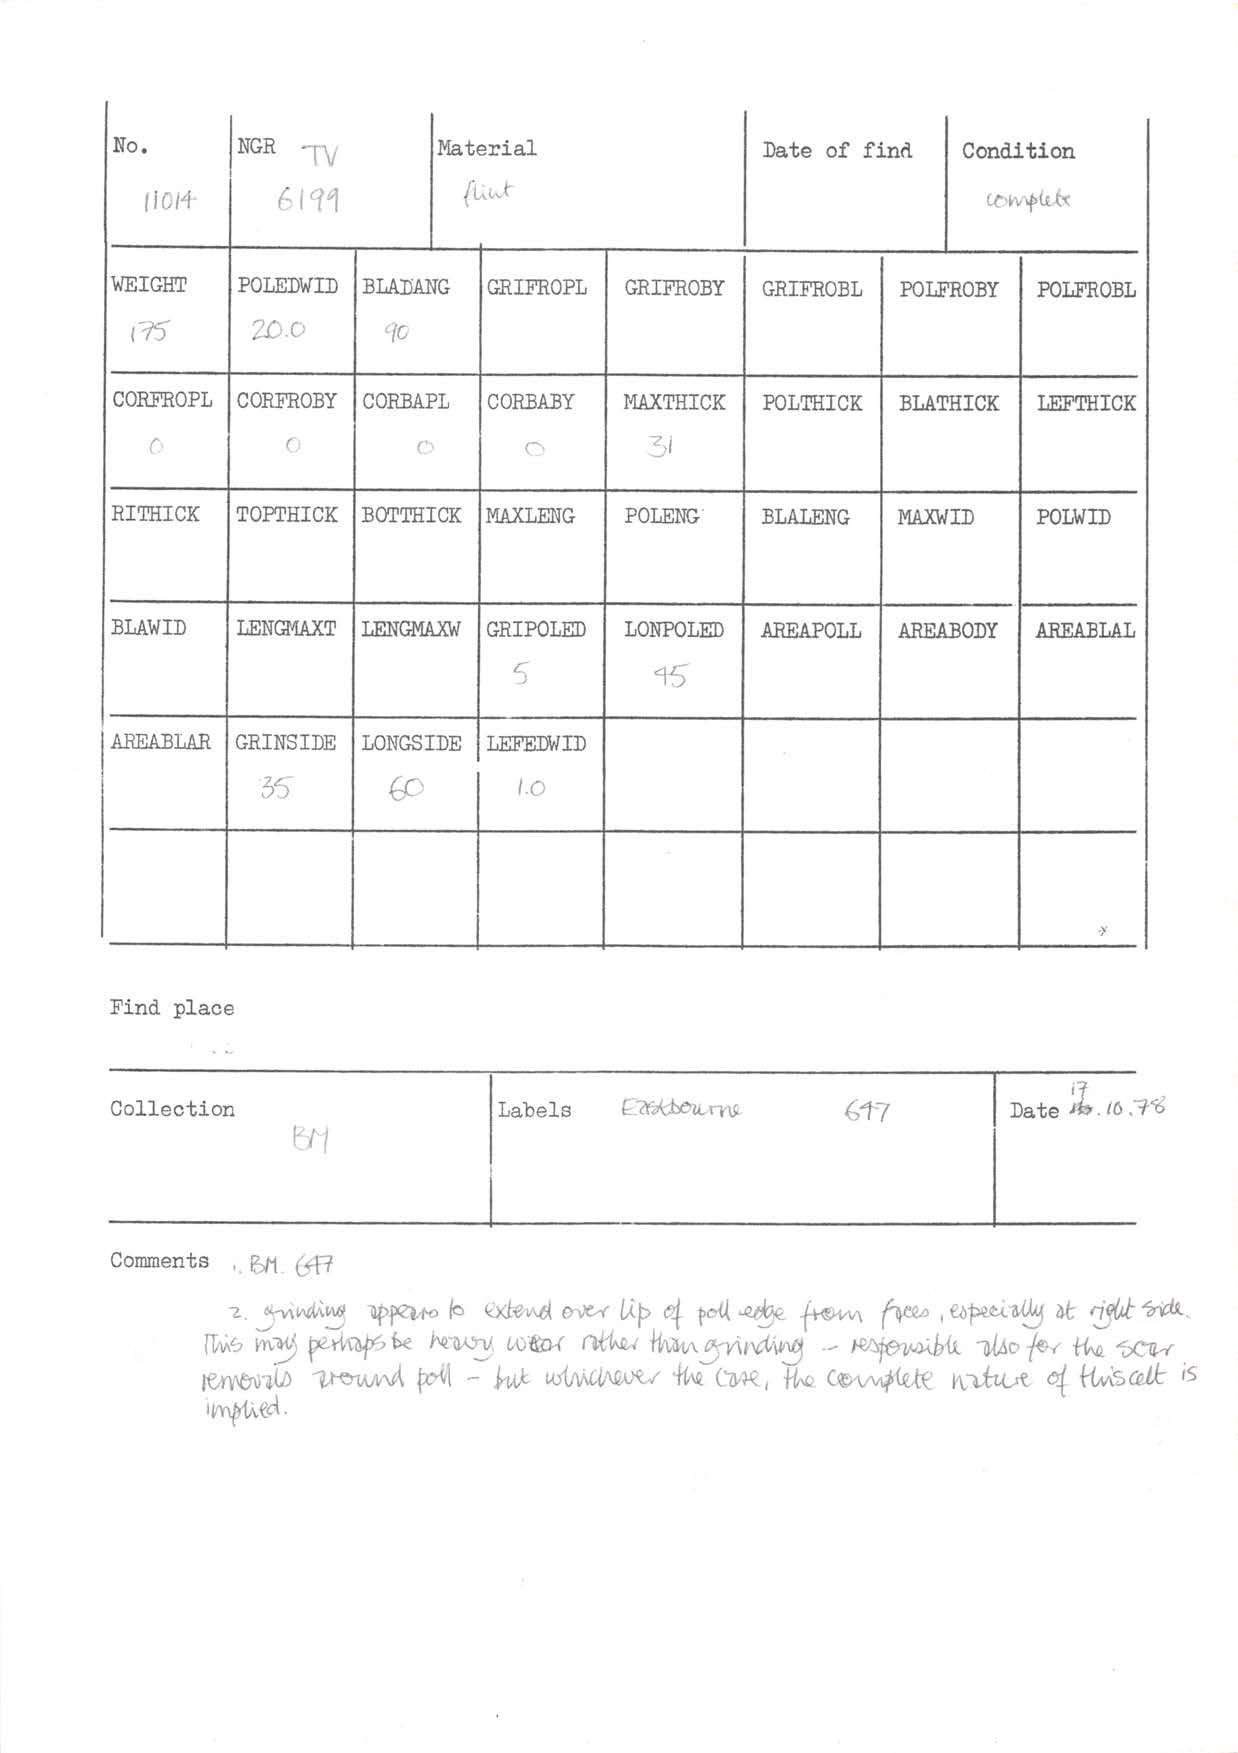 No. NGR TV Material Date of find Condition
11014 6199 flint complete
WEIGHT POLEDWID BLADANG GRIFROPL GRIFROBY GRIFROBL POLFROBY POLFROBL
175 20.0 90
CORFROPL CORFROBY CORBAPL CORBABY MAXTHICK POLTHICK BLATHICK LEFTHICK
0 0 0 0 31
RITHICK TOPTHICK BOTTHICK MAXLENG POLENG BLALENG MAXWID POLWID
BLAWID LENGMAXT LENGMAXW GRIPOLED LONPOLED AREAPOLL AREABODY AREABLAL
5 45
AREABLAR GRINSIDE LONGSIDE LEFEDWID
35 60 1.0
Find place
Collection Labels Eastbourne 647 Date 17.10.78
BM
Comments 1. BM. 647
2. grinding appears to extend over lip of poll edge from faces, especially at right side.
This may perhaps be heavy wear rather than grinding - responsible also for the scar
removals around poll - but whichever the case, the complete nature of this celt is
implied.